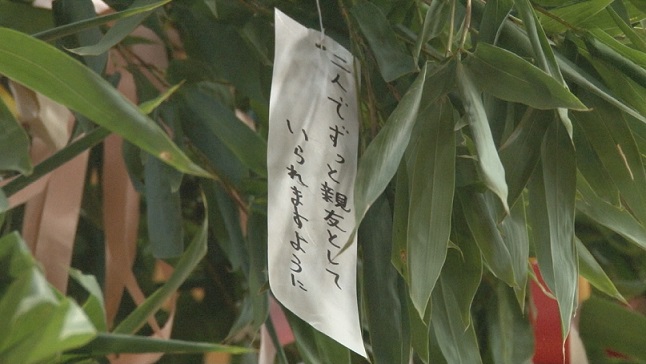 二人でずっと親友として
いられますように